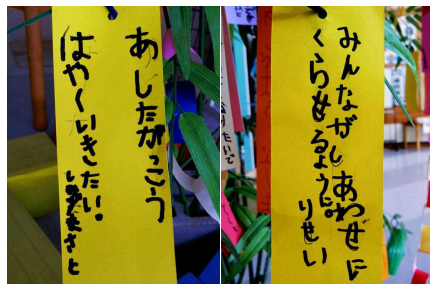 あしたがっこう
はやくいきたい。
まさと
みんながしあわせに
くらせるように。
りせい